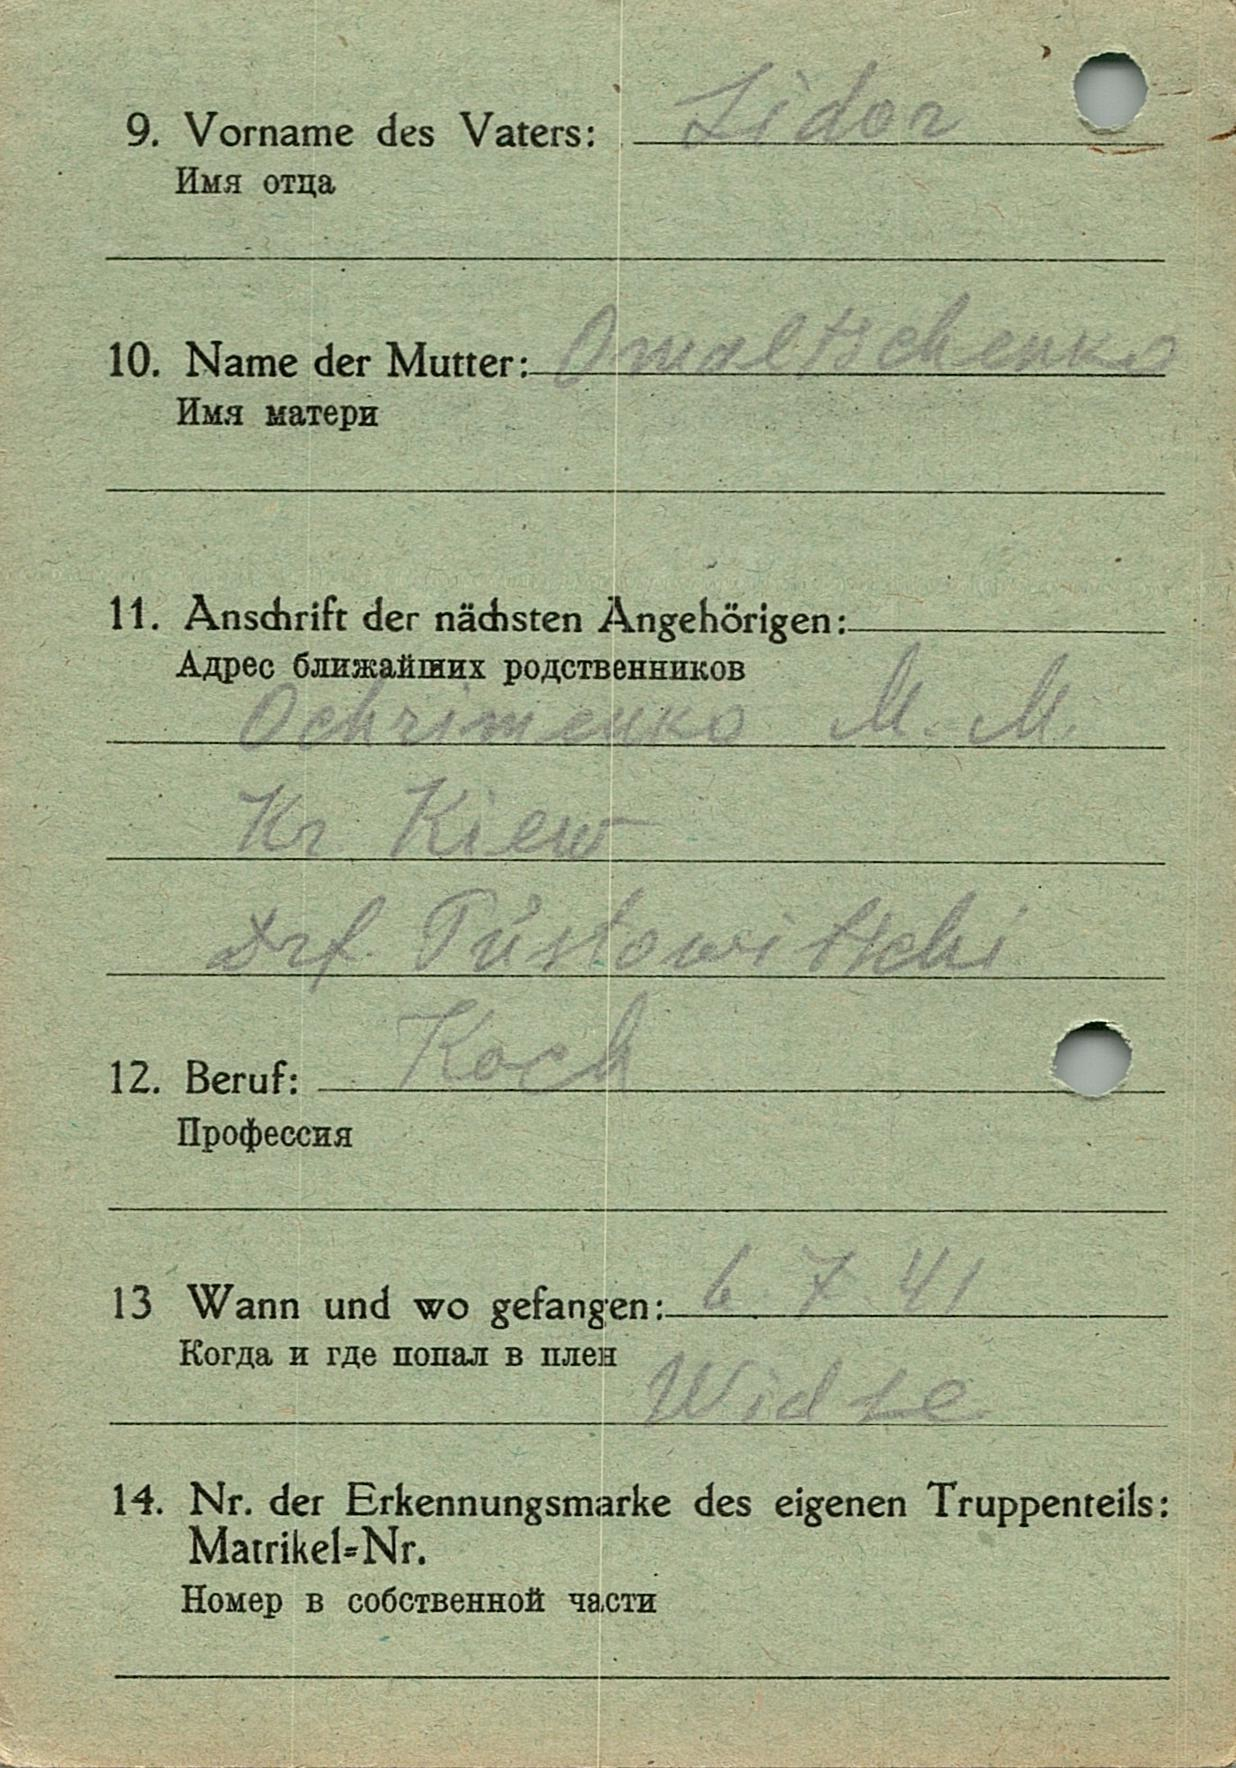 9. Vorname des Vaters: Sidor
Имя отца
10. Name der Mutter: Omaltschenko
Имя матери
11. Anschrift der nächsten Angehörigen:
Адрес ближайших родственников
Ochrimenko M. M.
Kr. Kiew
Drf. Pústowitschi
12. Beruf: Koch
Профессия
13 Wann und wo gefangen: 6. 7. 41
Когда и где попал в плен
Widse
14. Nr. der Erkennungsmarke des eigenen Truppenteils:
Matrikel=Nr.
Номер в собственной части